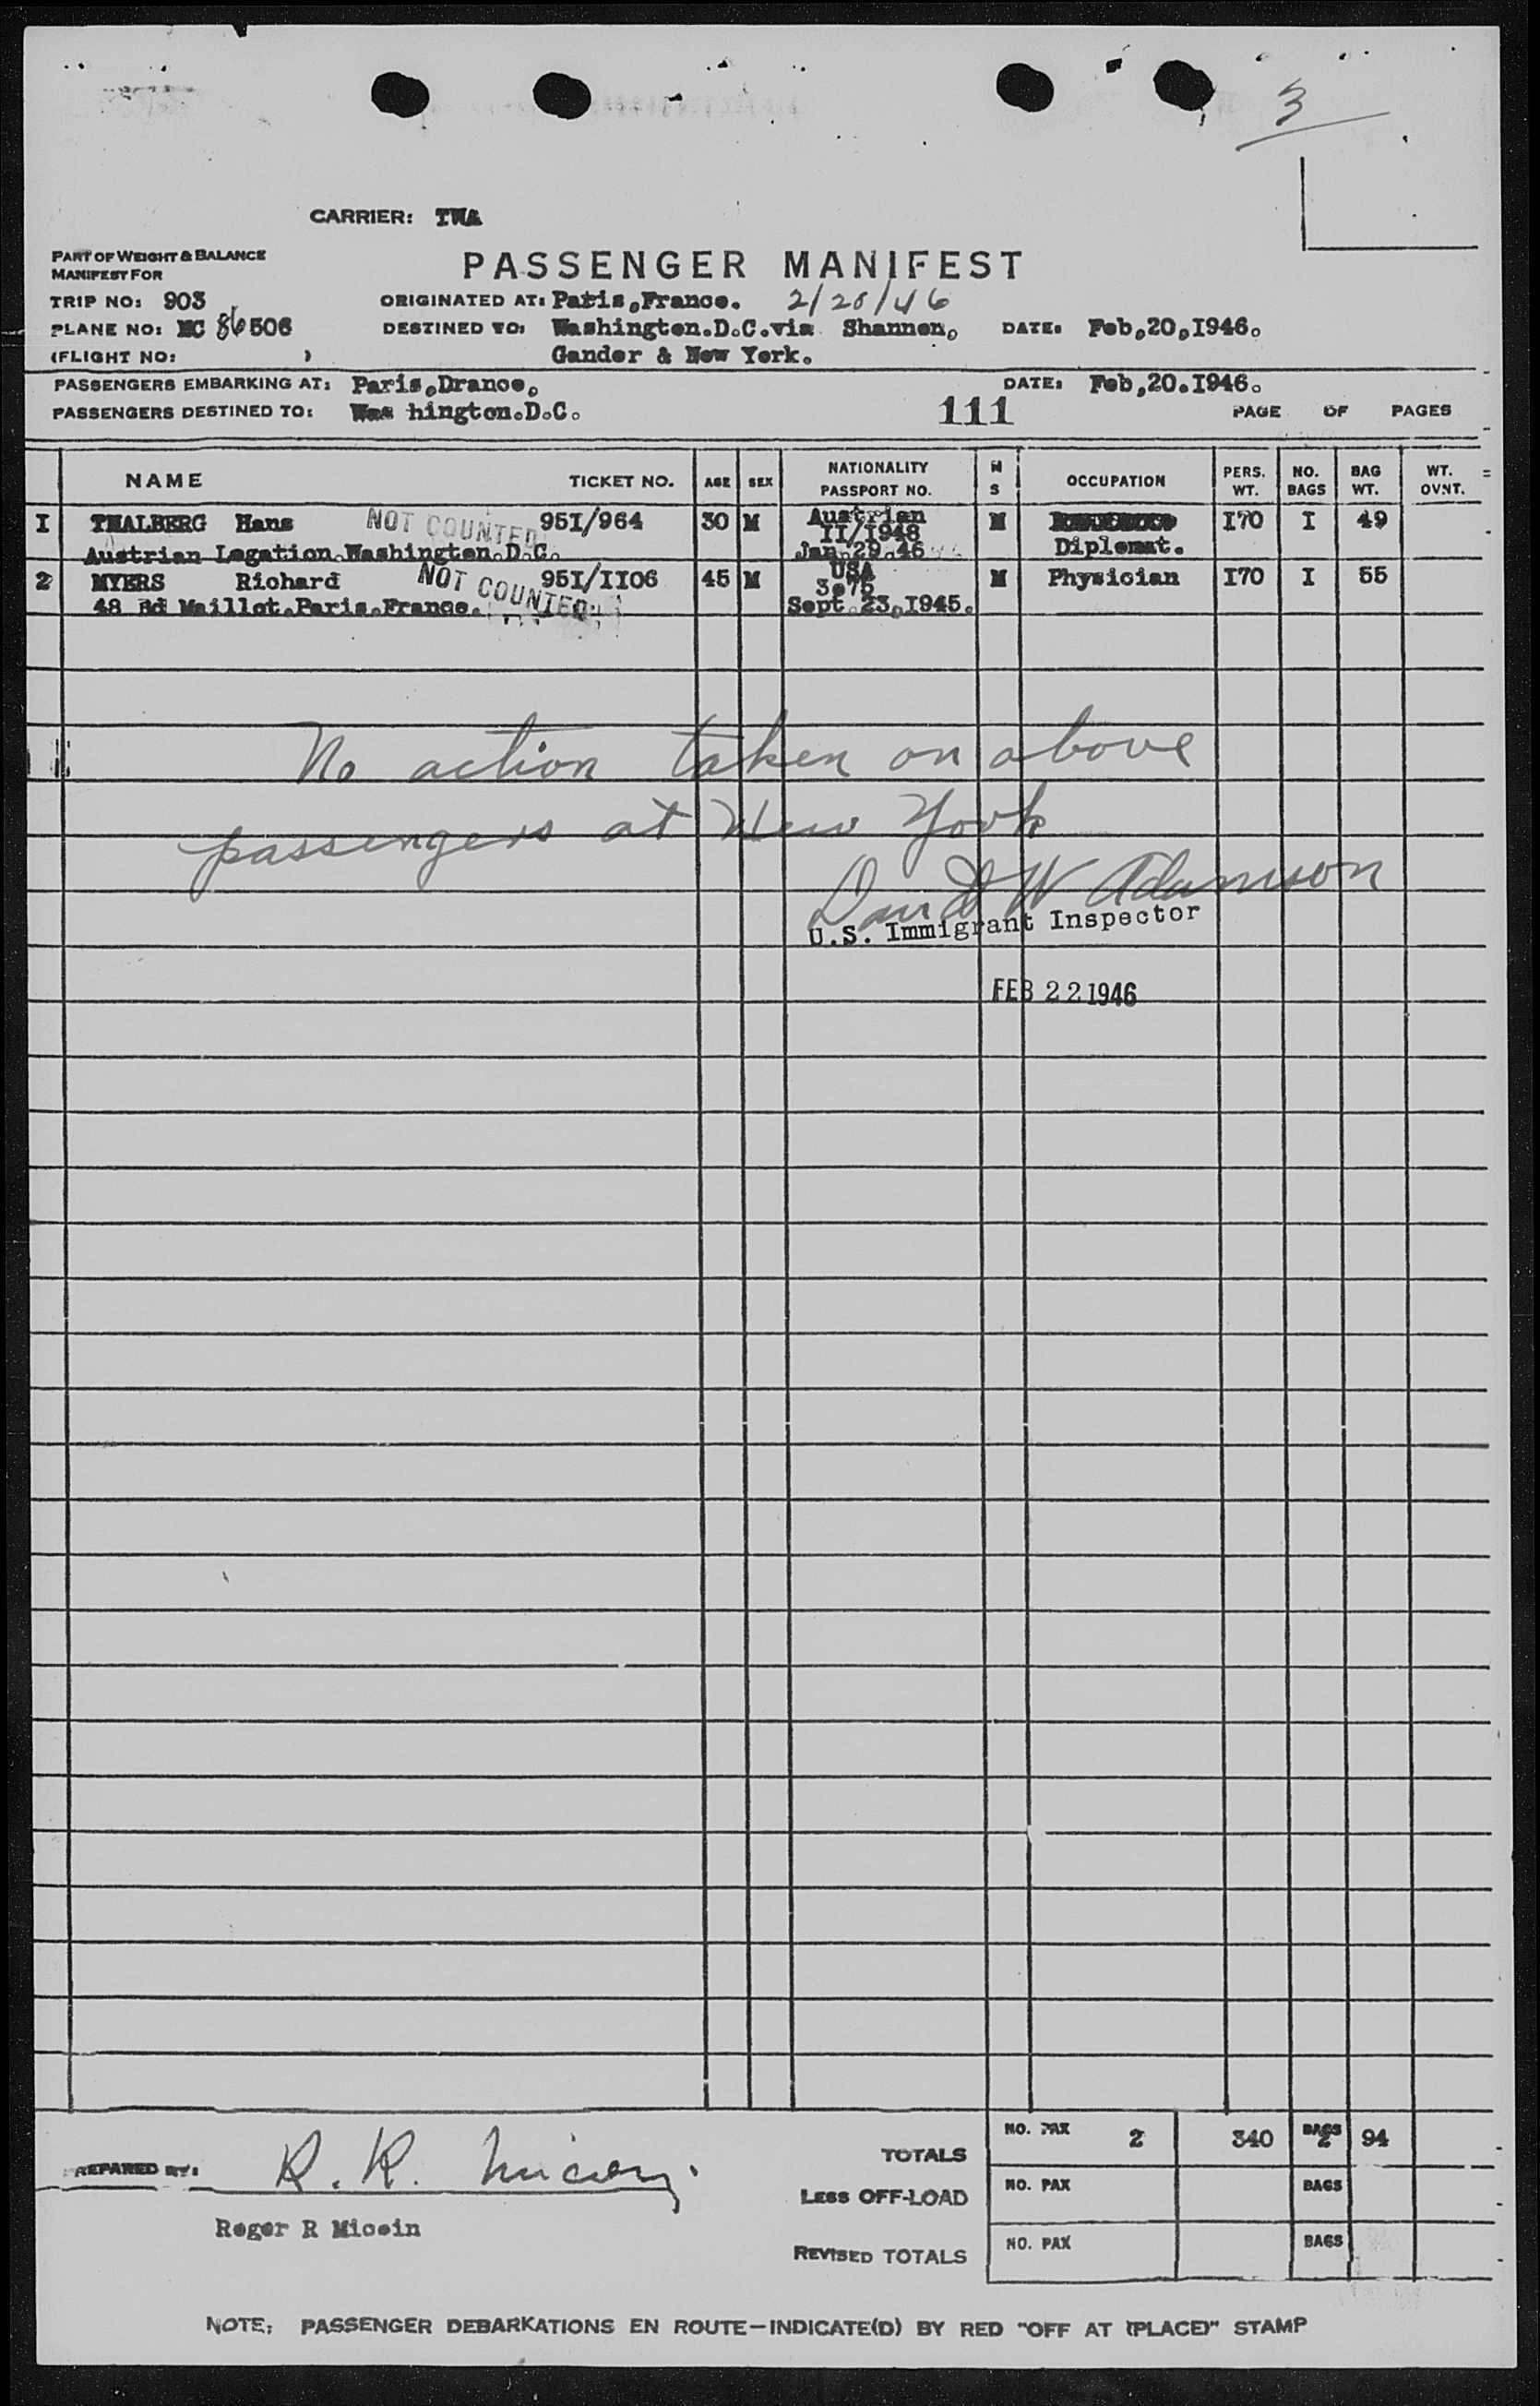 3
CARRIER: TWA
PART OF WEIGHT & BALANCE
MANIFEST FOR
PASSENGER MANIFEST
TRIP NO: 903
ORIGINATED AT: Patis,France. 2/20/46
PLANE NO: NC 86506
DESTINED TO: Washington.D.C.via Shannon, DATE: Feb,20,I946.
(FLIGHT NO: )
Gander & New York.
PASSENGERS EMBARKING AT: Paris,Drance, DATE: Feb,20.I946.
PASSENGERS DESTINED TO: Was hington.D.C. 111 PAGE OF PAGES
NAME TICKET NO. AGE SEX NATIONALITY PASSPORT NO. M S OCCUPATION PERS. WT. NO. BAGS BAG WT. WT. OVNT.
I THALBERG Hans NOT COUNTED 95I/964 30 M Austrian M I70 I 49
II/I948
Austrian Legation.Washington.D.C. Jan.29.46 Diplomat.
2 MYERS Richard NOT COUNTED 95I/II06 45 M USA M Physician I70 I 55
48 Bd Maillot.Paris.France. Sept.23,I945.
No action taken on above
passengers at New York
David W Adamson
U.S. Immigrant Inspector
FEB 22 1946
TOTALS NO. PAX 2 340 BAGS 2 94
PREPARED BY: R. R.
LESS OFF-LOAD NO. PAX BAGS
Roger R Micoin
REVISED TOTALS NO. PAX BAGS
NOTE: PASSENGER DEBARKATIONS EN ROUTE—INDICATE(D) BY RED "OFF AT (PLACE)" STAMP